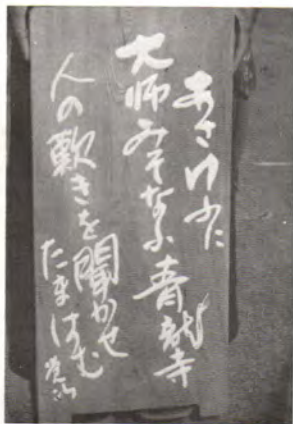 あさけふに
大師みそなふ青龍寺
人の歎きを聞かせ
たまはむ